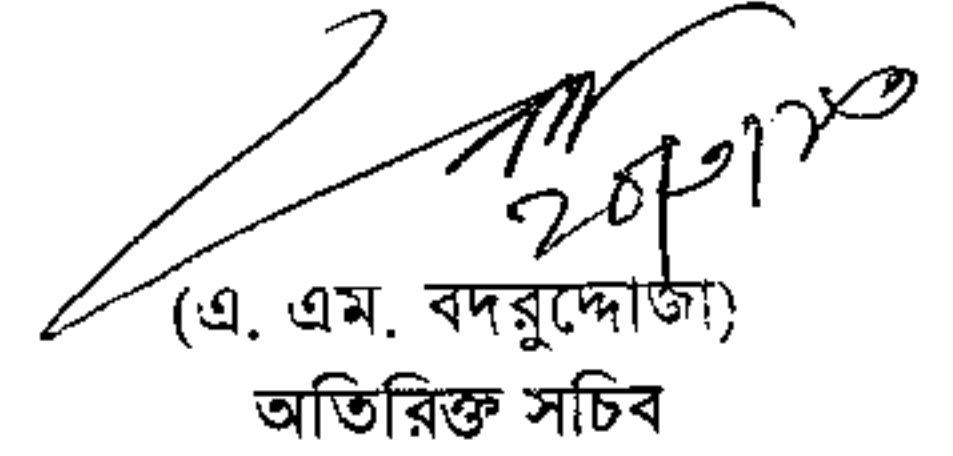 (এ. এম. বদরুদ্দোজা)
অতিরিক্ত সচিব